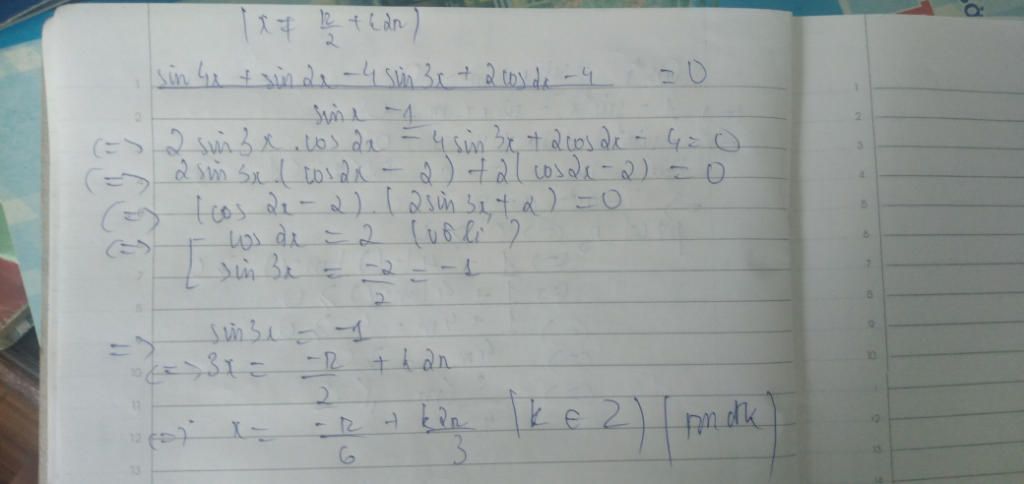 (x ≠ π/2 + k2π)
(sin 4x + sin 2x - 4 sin 3x + 2 cos 2x - 4)/(sin x - 1) = 0
(=> 2 sin 3x . cos 2x - 4 sin 3x + 2 cos 2x - 4 = 0
(=> 2 sin 3x . (cos 2x - 2) + 2 (cos 2x - 2) = 0
(=> (cos 2x - 2) . (2 sin 3x + 2) = 0
(=> [ cos 2x = 2 (vô lí)
sin 3x = -2/2 = -1
=> sin 3x = -1
(=> 3x = -π/2 + k2π
(=> x = -π/6 + k2π/3 (k ∈ Z) (tm đk)